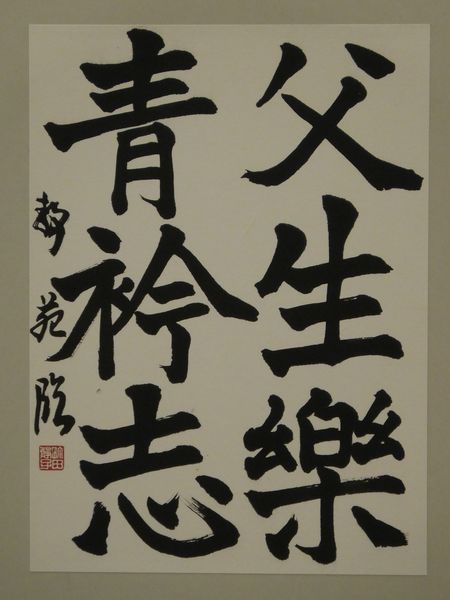 父生樂
青衿志
静苑臨